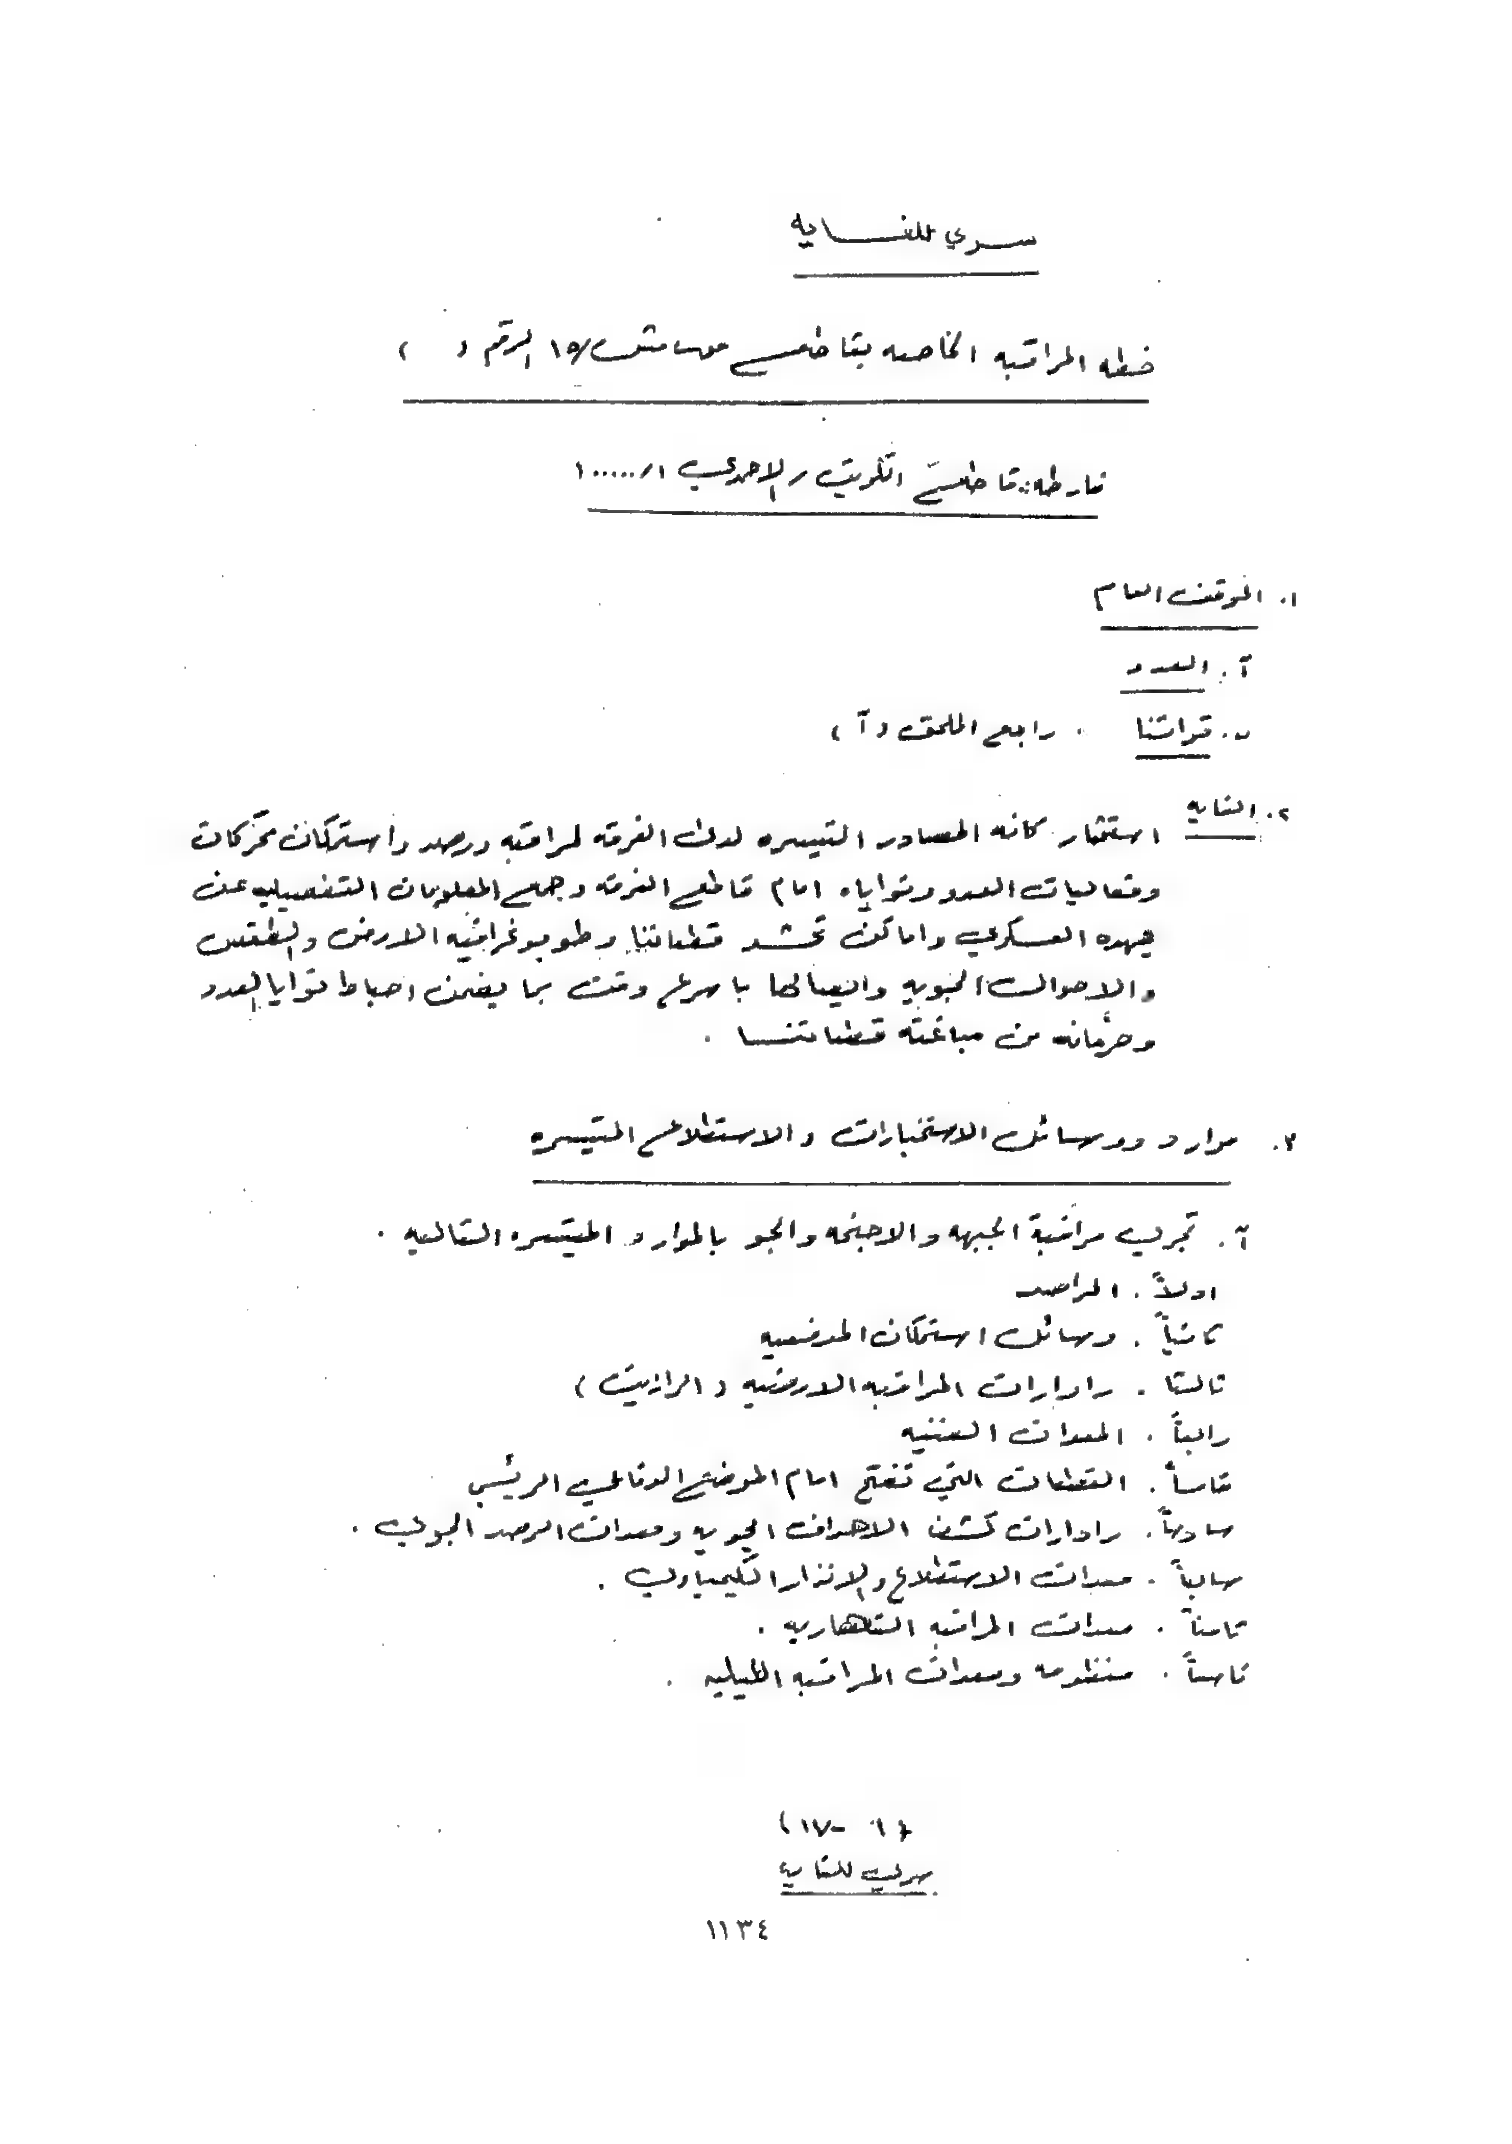 سري للغايه
خطه المراقبه الخاصه بقاطع فق مش/١٥ الرقم ( )
خارطه: قاطع الكويت / الاحمدي ١/١٠٠٠٠٠
١. الموقف العام
آ. العدو
ب. قواتنا . راجع الملحق (آ)
٢. الغايه استثمار كافه المصادر المتيسره لدى الفرقه لمراقبه ورصد واستمكان تحركات
وفعاليات العدو ونواياه امام قاطع الفرقه وجمع المعلومات التفصيليه عن
جهده العسكري واماكن تحشد قطعاتنا وطوبوغرافيه الارض والطقس
والاحوال الجويه وايصالها باسرع وقت بما يضمن احباط نوايا العدو
وحرمانه من مباغته قطعاتنا .
٣. موارد ووسائل الاستخبارات والاستطلاع المتيسره
آ. تجري مراقبة الجبهه والاجنحه والجو بالموارد المتيسره التاليه .
اولاً . المراصد
ثانياً . وسائل استمكان المدفعيه
ثالثا . رادارات المراقبه الارضيه ( الرازيت )
رابعاً . المعدات الفنيه
خامساً . القطعات التي تفتح امام الموضع الدفاعي الرئيسي
سادساً . رادارات كشف الاهداف الجويه ومعدات الرصد الجوي .
سابعاً . معدات الاستطلاع والانذار الكيمياوي .
ثامناً . معدات المراقبه النهاريه .
تاسعاً . منظومه ومعدات المراقبه الليليه .
(١ - ١٧)
سري للغايه
١١٣٤